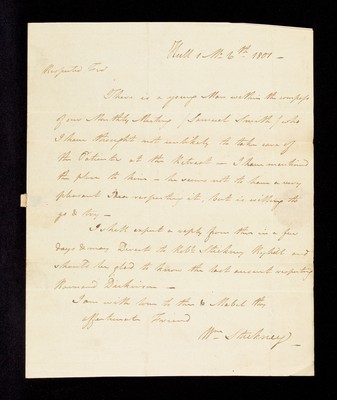 Hull 1 Mo 6th 1801 –
Respected Frd
There is a young Man within the compass
of our Monthly Meeting (Samuel Smith) who
I have thought not unlikely to take care of
the Patients at the Retreat – I have mentioned
the place to him – he seems not to have a very
pleasant Idea respecting it, but is willing to
go & try –
I shall expect a reply from thee in a few
days & may Direct to Robt Stickney Ryhill and
should be glad to know the last account respecting
Hannah Dickinson –
I am with love to thee & Mabel thy
affectionate Friend
Wm Stickney